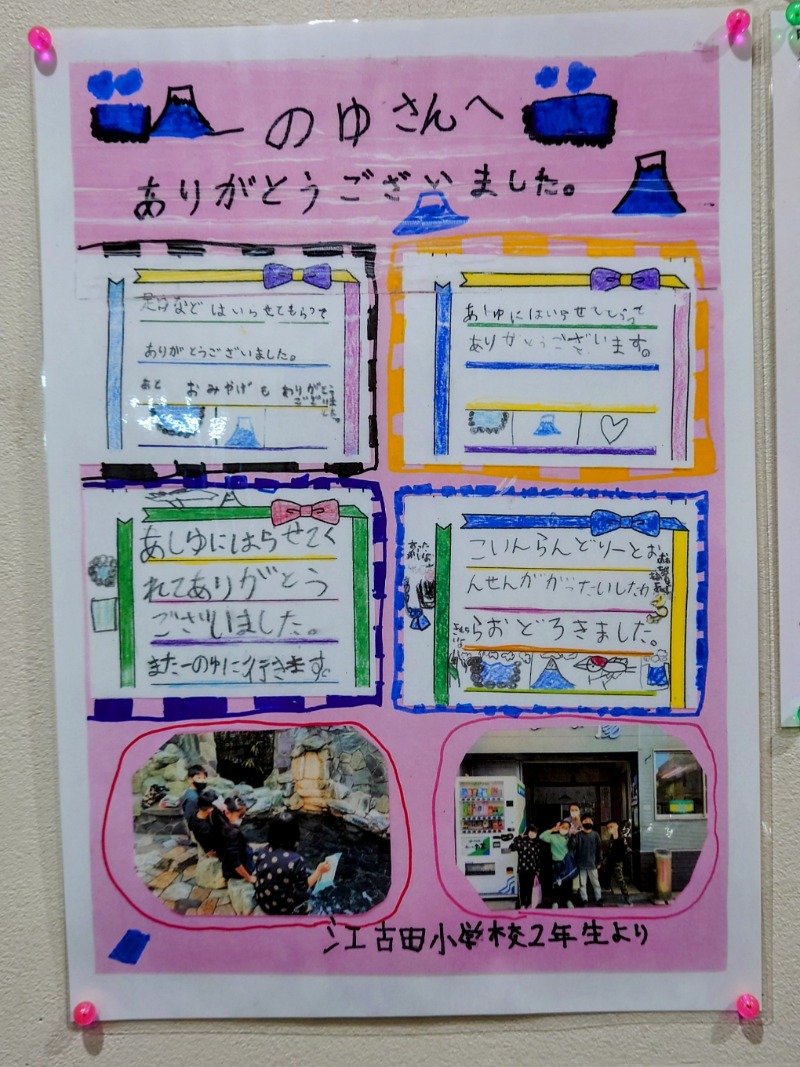 一のゆさんへ
ありがとうございました。
足ゆなど はいらせてもらって
ありがとうございました。
あと おみやげも わりがとう
ございました。
あしゆにはいらせてもらって
ありがとうございます。
あしゆにはらせてく
れてありがとう
ございました。
また一のゆに行きます。
こいんらんどりーとお
んせんががったいしたか
らおどろきました。
江古田小学校2年生より